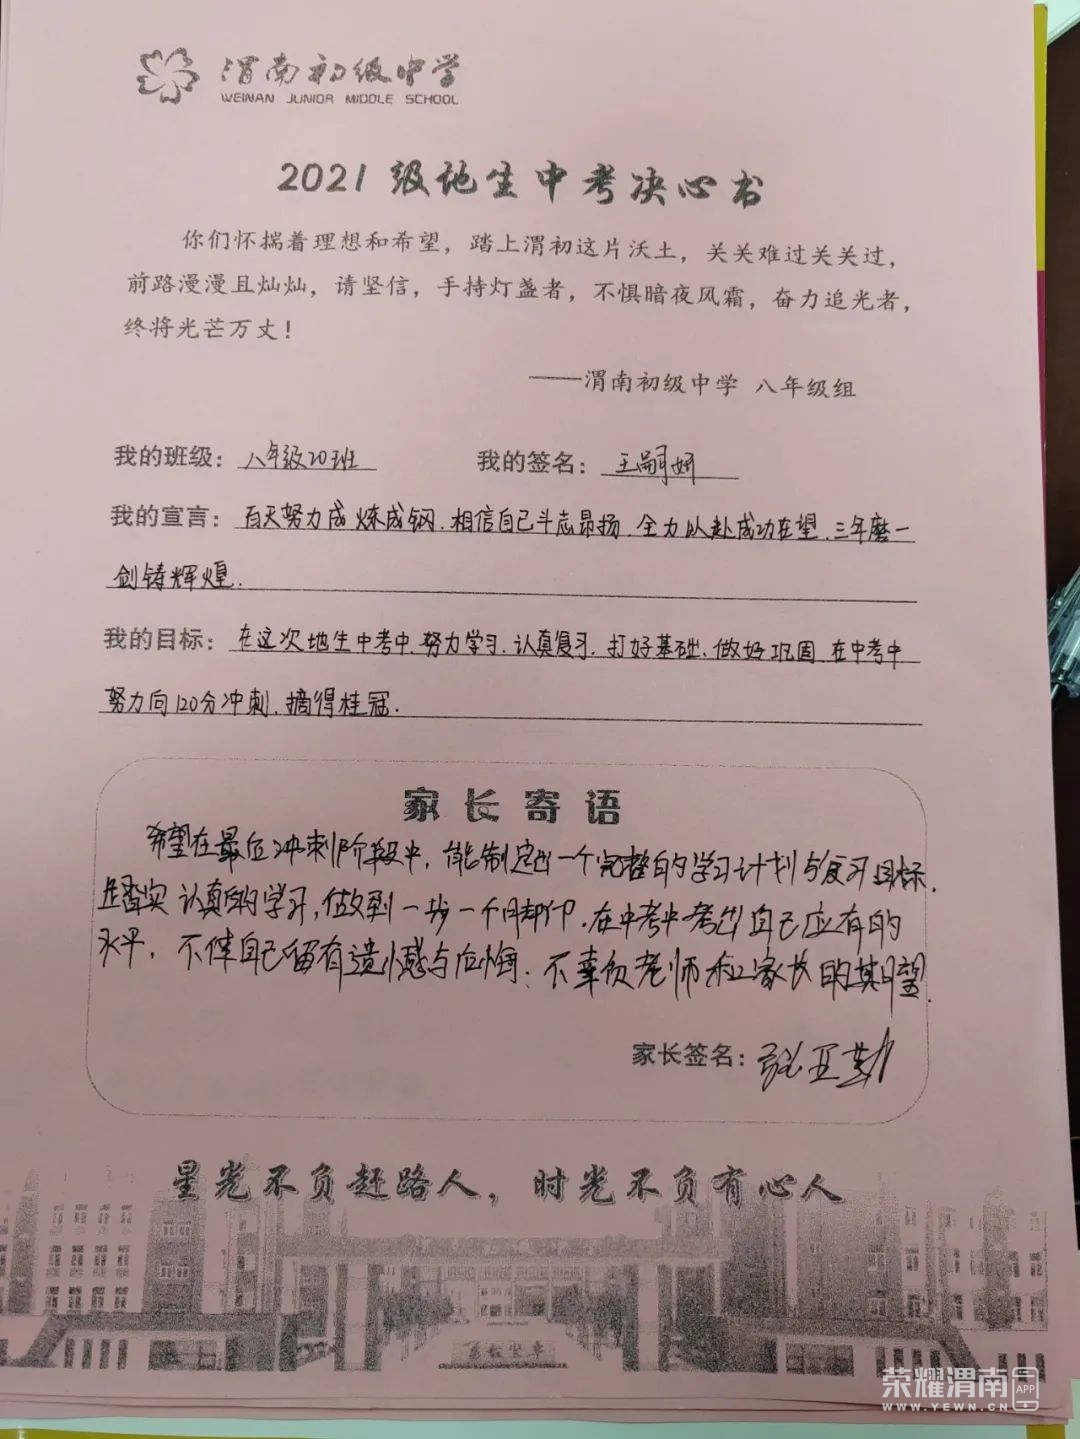 渭南初级中学
WEINAN JUNIOR MIDDLE SCHOOL
2021级地生中考决心书
你们怀揣着理想和希望，踏上渭初这片沃土，关关难过关关过，
前路漫漫且灿灿，请坚信，手持灯盏者，不惧暗夜风霜，奋力追光者，
终将光芒万丈！
——渭南初级中学 八年级组
我的班级：八年级20班 我的签名：王嗣妍
我的宣言：百天努力成炼成钢.相信自己斗志昂扬.全力以赴成功在望.三年磨一
剑铸辉煌.
我的目标：在这次地生中考中.努力学习.认真复习.打好基础.做好巩固.在中考中
努力向120分冲刺.摘得桂冠.
家长寄语
希望在最后冲刺阶段中，能制定出一个完整的学习计划与复习目标.
踏实认真的学习,做到一步一个脚印.在中考中考出自己应有的
水平，不使自己留有遗憾与后悔.不辜负老师和家长的期望.
家长签名：张亚勤
星光不负赶路人，时光不负有心人
荣耀渭南 APP
WWW.YEWN.CN